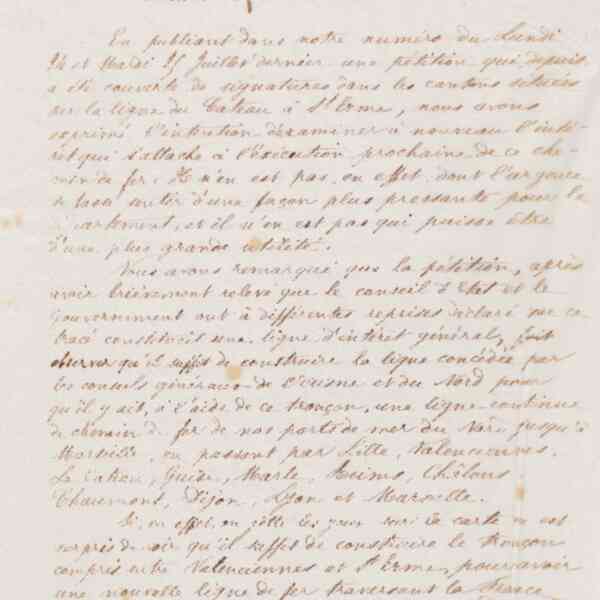 En publiant dans notre numéro du Lundi
24 et Mardi 25 Juillet dernier une pétition qui depuis
a été couverte de signatures dans les cantons situées
sur la ligne du Cateau à St Erme, nous avons
exprimé l'intention d'examiner à nouveau l'inté-
rêt qui s'attache à l'éxécution prochaine de ce che-
min de fer. Il n'en est pas, en effet dont l'urgence
se fasse sentir d'une façon plus pressante pour le
département, et il n'en est pas qui puisse être
d'une plus grande utilité.
Nous avons remarqué que la pétition, après
avoir brièvement relevé que le conseil d'Etat et le
Gouvernement ont à différentes reprises déclaré que ce
tracé constituait une ligne d'intérêt général, fait
observer qu'il suffit de construire la ligne concédée par
les conseils généraux de l'Aisne et du Nord pour
qu'il y ait, à l'aide de ce tronçon, une ligne continue
de chemin de fer de nos ports de mer du Nord jusqu'à
Marseille, en passant par Lille, Valenciennes,
Le Cateau, Guise, Marle, Reims, Châlons,
Chaumont, Dijon, Lyon et Marseille.
Si, en effet, on jette les yeux sur la carte on est
surpris de voir qu'il suffit de construire le tronçon
compris entre Valenciennes et St Erme, pour avoir
une nouvelle ligne de fer traversant la France